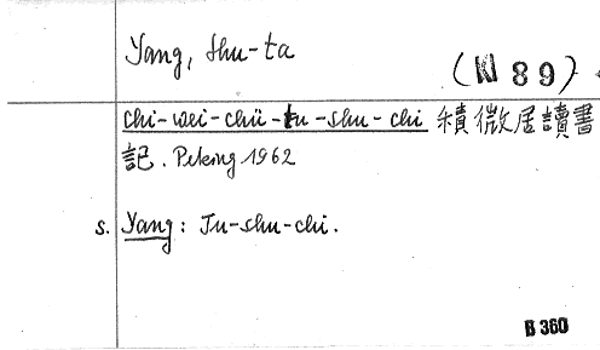 Yang, Shu-ta
(N 89)
chi-wei-chü-tu-shu-chi 積微居讀書
記. Peking 1962
s. Yang: Tu-shu-chi.
B 360